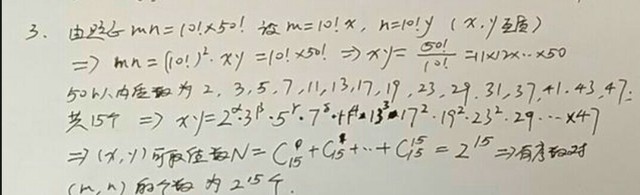 3. 由题子 mn=10!×50! 设 m=10!x, n=10!y (x,y互质)
⇒ mn=(10!)²·xy=10!×50! ⇒ xy=50!/10!=11×12×…×50
50以内质数为 2, 3, 5, 7, 11, 13, 17, 19, 23, 29, 31, 37, 41, 43, 47.
共15个 ⇒ xy=2^α·3^β·5^γ·7^δ·11^4·13^3·17²·19²·23²·29…×47
⇒ (x,y)可取值数N=C₁₅⁰+C₁₅¹+…+C₁₅¹⁵=2¹⁵⇒有序数对
(m,n)的个数为2¹⁵个.